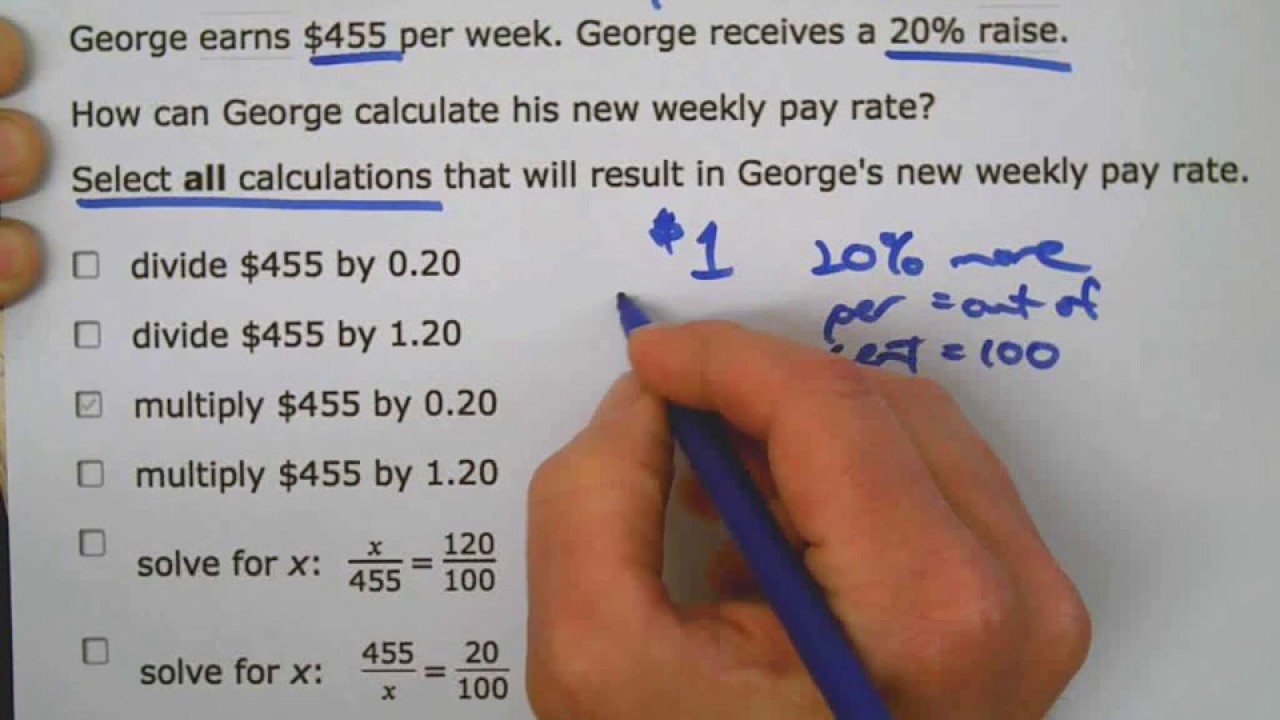 George earns $455 per week. George receives a 20% raise.
How can George calculate his new weekly pay rate?
Select all calculations that will result in George's new weekly pay rate.
$1 20% more
per = out of
cent = 100
divide $455 by 0.20
divide $455 by 1.20
multiply $455 by 0.20
multiply $455 by 1.20
solve for x: x/455 = 120/100
solve for x: 455/x = 20/100